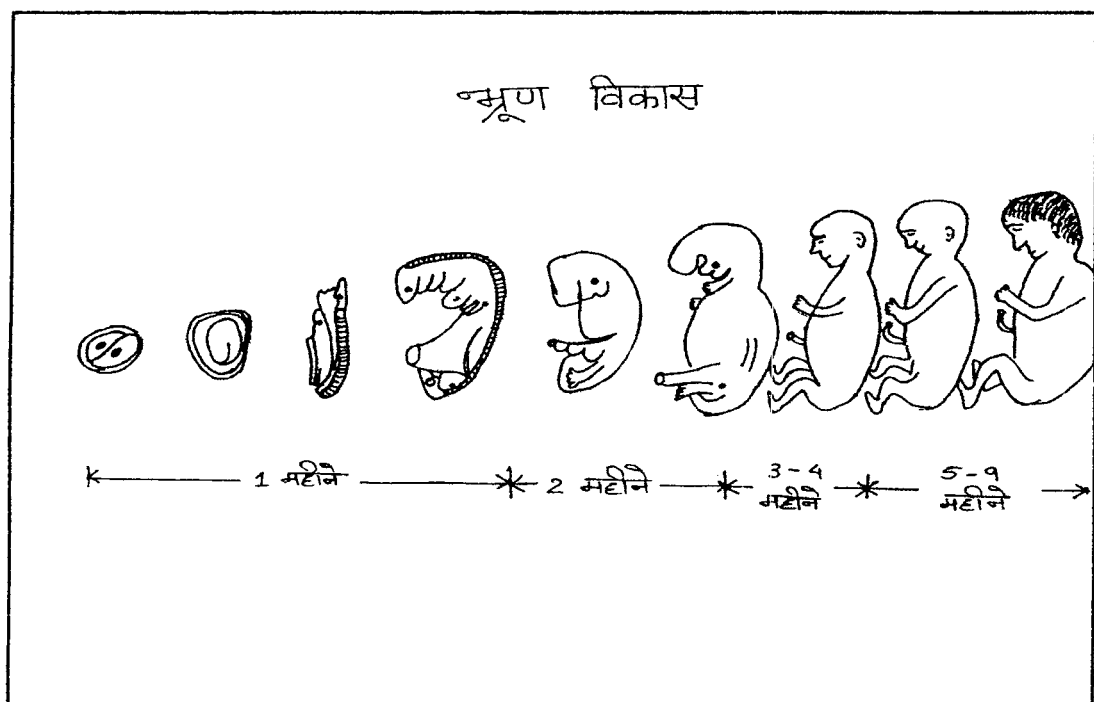 भ्रूण विकास
1 महीने
2 महीने
3-4
महीने
5-9
महीने